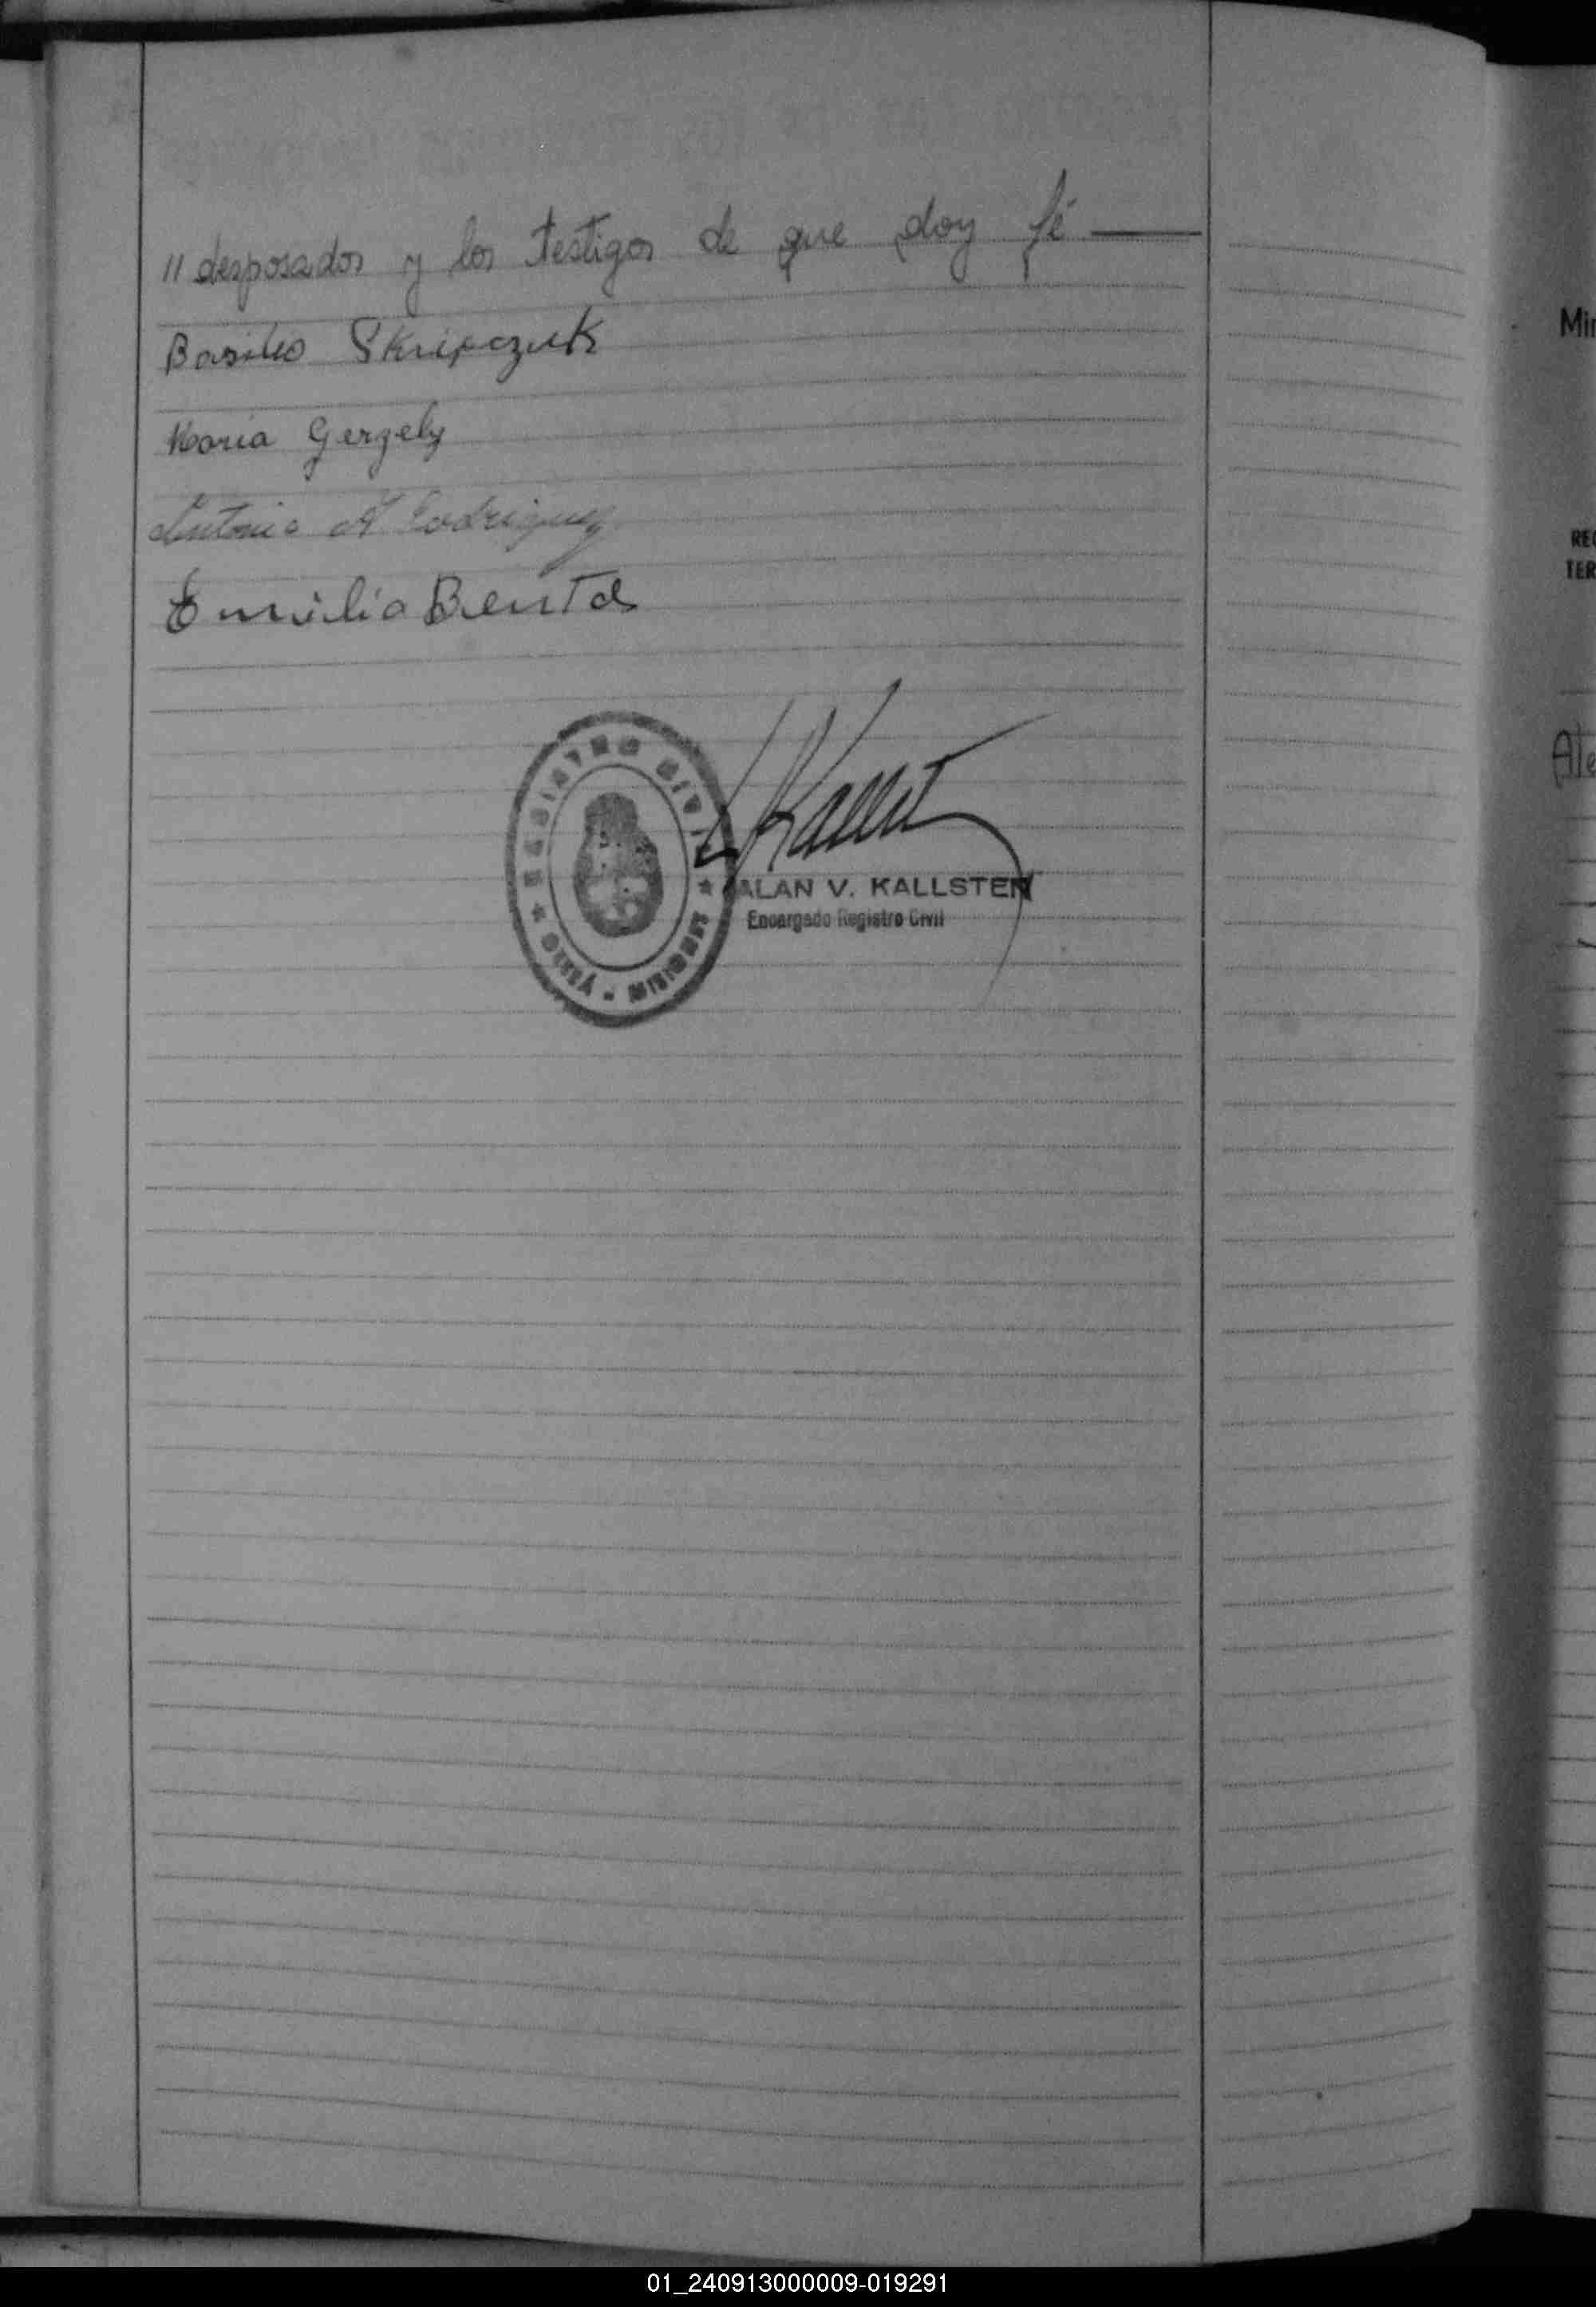 // desposados y los testigos de que doy fé —
Basilio Skripczuk
Maria Gergely
Antonio A Rodriguez
Emilia Benta
REGISTRO CIVIL
OBERÁ - MISIONES
ALAN V. KALLSTEN
Encargado Registro Civil
Min
REG
TER
Ale
01_240913000009-019291